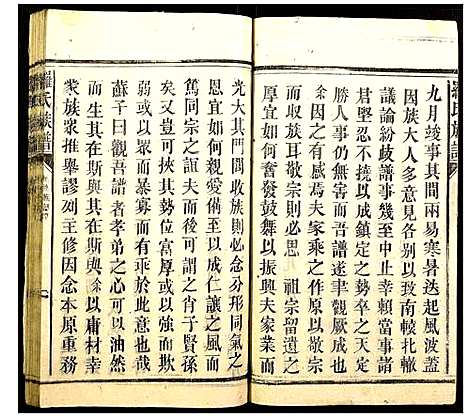 九月竣事其間兩易寒暑迭起風波蓋
因族大人多意見各别以致南轅北轍
議論紛歧譜事幾至中止幸賴當事諸
君堅忍不撓以成鎮定之勢卒之天定
勝人事仍不敗而吾譜遂聿觀厥成也
余因之有感焉夫家乘之作所以敬宗
所以收族耳敬宗則必思 祖宗留遺之
厚宜如何奮發鼓舞以振興夫家業而
光大其門閭收族則必念分形同氣之
恩宜如何親愛僃至以成仁讓之風而
篤同宗之誼夫而後可謂之肖子賢孫
矣又豈可挾其勢位富厚或以強而欺
弱或以衆而暴寡有乖於此意也哉
蘇子曰觀吾譜者孝弟之心可以油然
而生其在斯與其在斯與余以庸材幸
蒙族眾推舉謬列主修因念本原重務
羅氏族譜
羅氏族譜